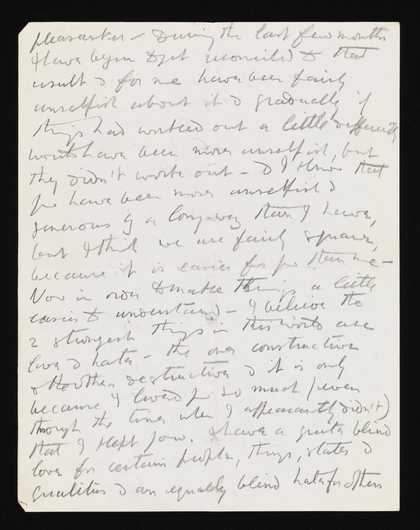 pleasanter – During the last few months
I have begun to get reconciled to that
result & for me have been fairly
unselfish about it & gradually if
things had worked out a little differently
would have been more unselfish, but
they didn't work out – & I know that
you have been more unselfish &
generous by a long way than I have,
but I think we are fairly square,
because it is easier for you than me –
Now in order to make things a little
easier to understand – I believe the
2 strongest things in this world are
love & hate – the one constructive
& the other destructive & it is only
because I loved you so much (even
through the times when I apparently didn't)
that I kept you. I have a quite blind
love for certain people, things, states &
qualities & an equally blind hate for others